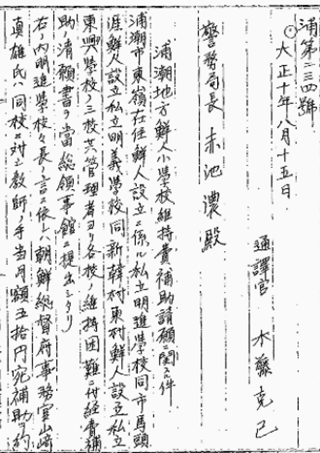 浦第二三四號
大正十年八月十五日
通譯官 木藤克己
警務局長 赤池濃殿
浦潮地方鮮人小學校維持費補助請願ニ関スル件
浦潮市東嶺在住鮮人設立ニ係ル私立明進學校同市馬頭
涯鮮人設立私立明義學校同新韓村東村鮮人設立私立
東興學校ノ三校共管理者ヨリ各校ノ維持困難ニ付経費補
助ノ請願書ヲ當総領事館ニ提出シタリ
右ノ内明進學校々長ノ言ニ依レハ朝鮮総督府事務官山崎
真雄氏ハ同校ニ対シ教師ノ手当月額五拾円宛補助ノ約